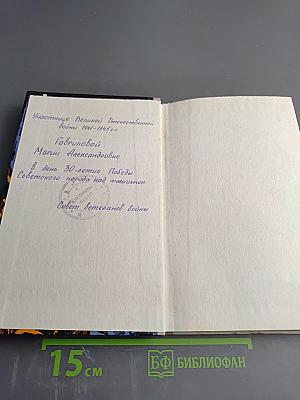 Участнице Великой Отечественной
войны 1941-1945 г.г
Гавриловой
Марии Александровне
в день 30-летия Победы
Советского народа над фашизмом
Совет ветеранов войны
15 см
БФ БИБЛИОФАН